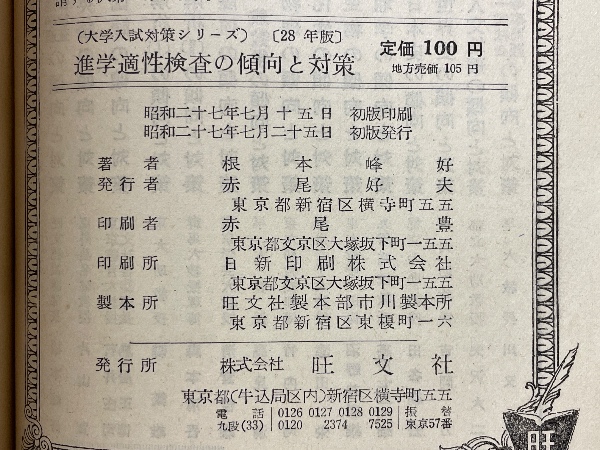 (大学入試対策シリーズ) 〔28年版〕
進学適性検査の傾向と対策
定価 100 円
地方売価 105 円
昭和二十七年七月十五日 初版印刷
昭和二十七年七月二十五日 初版発行
著者 根本峰好
発行者 赤尾好夫
東京都新宿区横寺町五五
印刷者 赤尾豊
東京都文京区大塚坂下町一五五
印刷所 日新印刷株式会社
東京都文京区大塚坂下町一五五
製本所 旺文社製本部市川製本所
東京都新宿区東榎町一六
発行所 株式会社 旺文社
東京都(牛込局区内)新宿区横寺町五五
電話 0126 0127 0128 0129 振替
九段(33) 0120 2374 7525 東京57番
旺